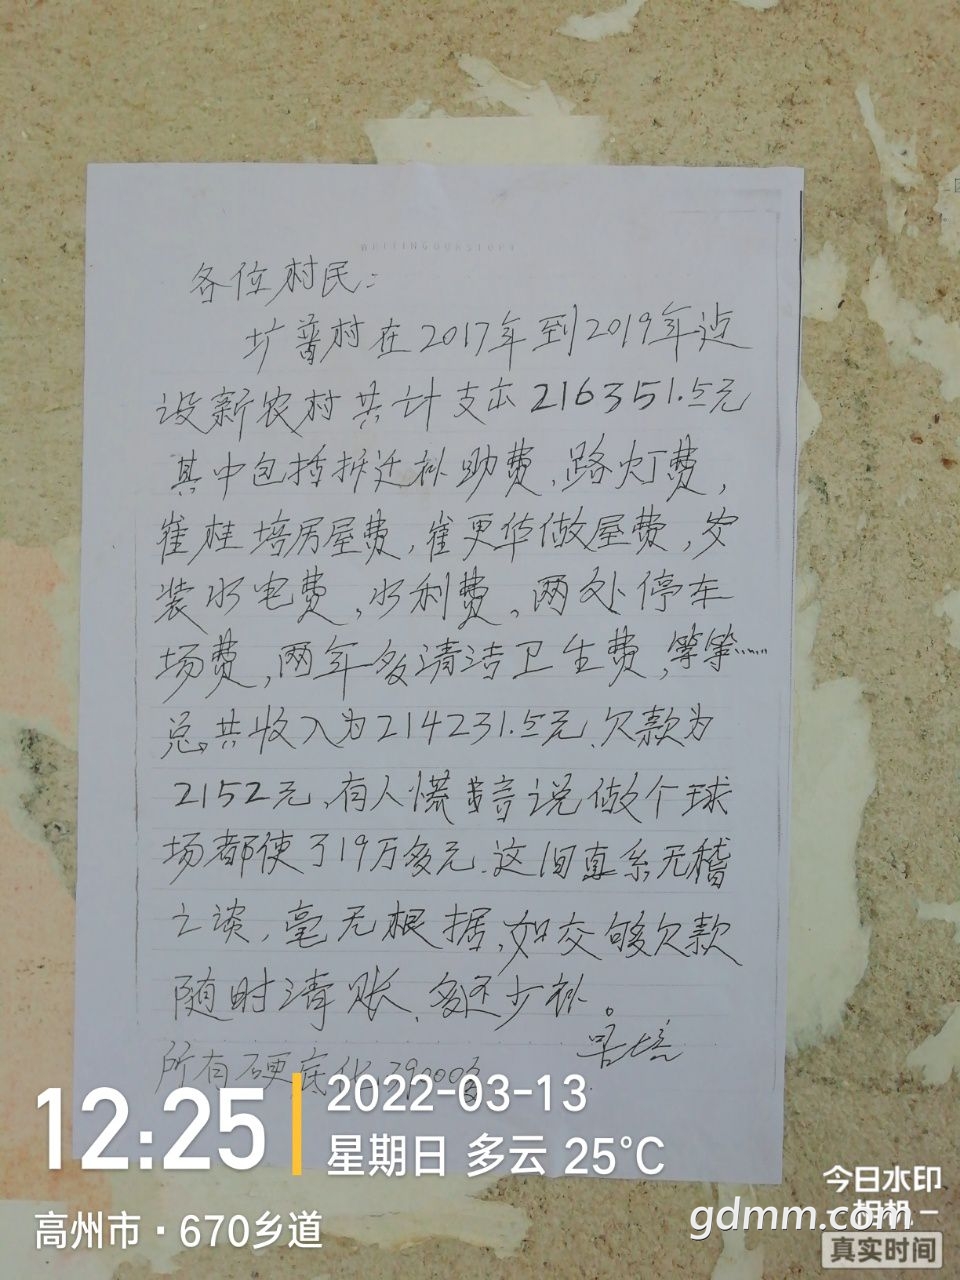 WRITINGOURSTORY
各位村民：
圹普村在2017年到2019年边
设新农村共计支出216351.5元
其中包括拆迁补助费、路灯费，
崔桂培房屋费，崔更华做屋费，安
装水电费，水利费，两处停车
场费，两年多清洁卫生费，等等……
总共收入为214231.5元、欠款为
2152元、有人慌 说做个球
场都使了19万多元.这旧真系无稽
之谈，毫无根据，如交够欠款
随时清账、多还少补。
培
所有硬底化
12:25
2022-03-13
星期日 多云 25°C
高州市·670乡道
今日水印
相机
gdmm.com
真实时间